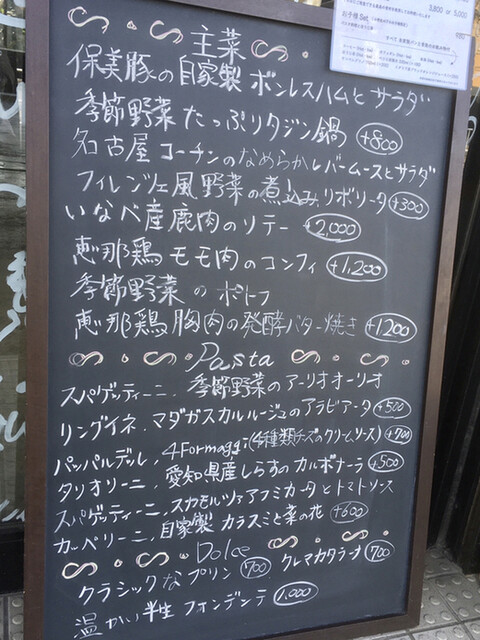 3,800 or 5,000
お子様Set
主菜
保美豚の自家製 ボンレスハムとサラダ
季節野菜 たっぷりタジン鍋 +800
名古屋コーチンのなめらかレバームースとサラダ
フィレンツェ風野菜の煮込み リボリータ +300
いなべ産鹿肉のソテー +2,000
恵那鶏モモ肉のコンフィ +1,200
季節野菜のポトフ
恵那鶏胸肉の発酵バター焼き +1200
Pasta
スパゲッティーニ、季節野菜のアーリオオーリオ
リングイネ、マダガスカルルージュのアラビアータ +500
パッパルデッレ、4Formaggi(4種類チーズのクリームソース) +700
タリオリーニ、愛知県産しらすのカルボナーラ +500
スパゲッティーニ、スカモルツァアフミカータとトマトソース
カッペリーニ、自家製カラスミと菜の花 +600
Dolce
クラシックなプリン 700 クレマカタラーナ 700
温かい半生フォンデンテ 1,000